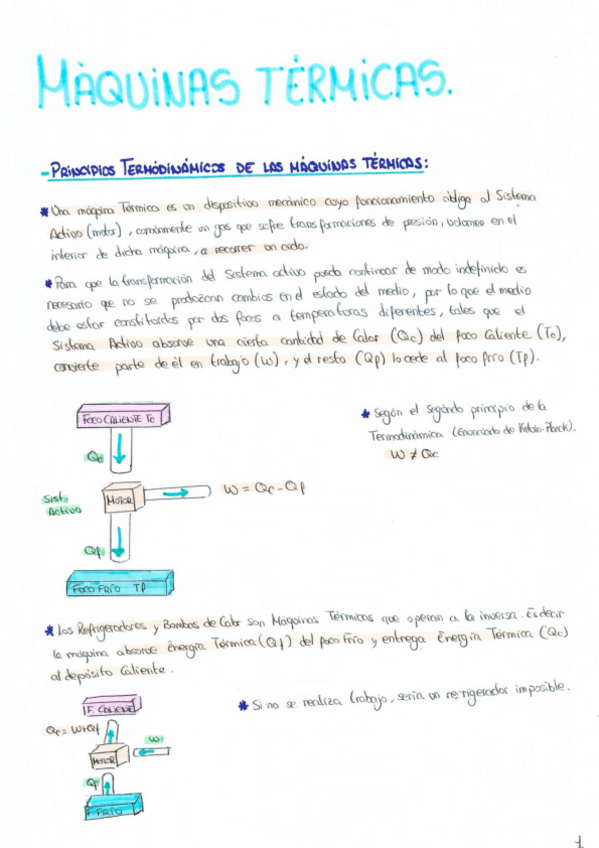 MÀQUINAS TÉRMICAS.
- PRINCIPIOS TERMODINÁMICOS DE LAS MÁQUINAS TÉRMICAS:
* Una máquina Térmica es un dispositivo mecánico cuyo funcionamiento obliga al Sistema
Activo (motor), comúnmente un gas que sufre transformaciones de presión, volumen en el
interior de dicha máquina, a recorrer un ciclo.
* Para que la transformación del Sistema activo pueda continuar de modo indefinido es
necesario que no se produzcan cambios en el estado del medio, por lo que el medio
debe estar constituidos por dos focos a temperaturas diferentes, tales que el
Sistema Activo absorbe una cierta cantidad de Calor (Qc) del foco Caliente (Tc),
convierte parte de él en trabajo (W), y el resto (Qf) lo cede al foco frío (Tf).
FOCO CALIENTE Tc
Qc
* Según el Segundo principio de la
Termodinámica (Enunciado de Kelvin-Planck).
W ≠ Qc
Sist.
Activo
MOTOR
W = Qc - Qf
Qf
FOCO FRÍO Tf
* Los Refrigeradores y Bombas de Calor son Máquinas Térmicas que operan a la inversa. Es decir
la máquina absorbe Energía Térmica (Qf) del foco frío y entrega Energía Térmica (Qc)
al depósito Caliente.
F. CALIENTE
* Si no se realiza trabajo, sería un refrigerador imposible.
Qc = W+Qf
W
MOTOR
Qf
F. FRÍO
1